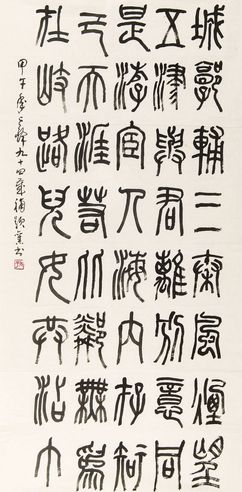 城郭輔三秦風煙望
五津與君離別意同
是游宦人海內存知
己天涯若比鄰無為
在岐路兒女共沾巾
甲午九十四歲補